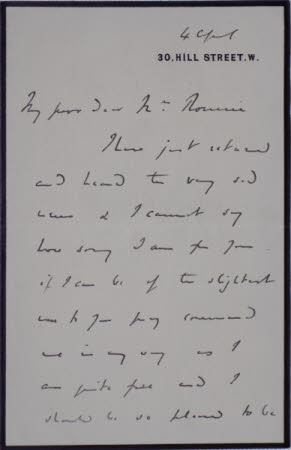 4 April
30, HILL STREET. W.
My poor dear Mrs
I have just returned
and heard the very sad
news & I cannot say
how sorry I am for you
if I can be of the slightest
use to you pray command
me in any way as I
am quite free and I
should be so pleased to be